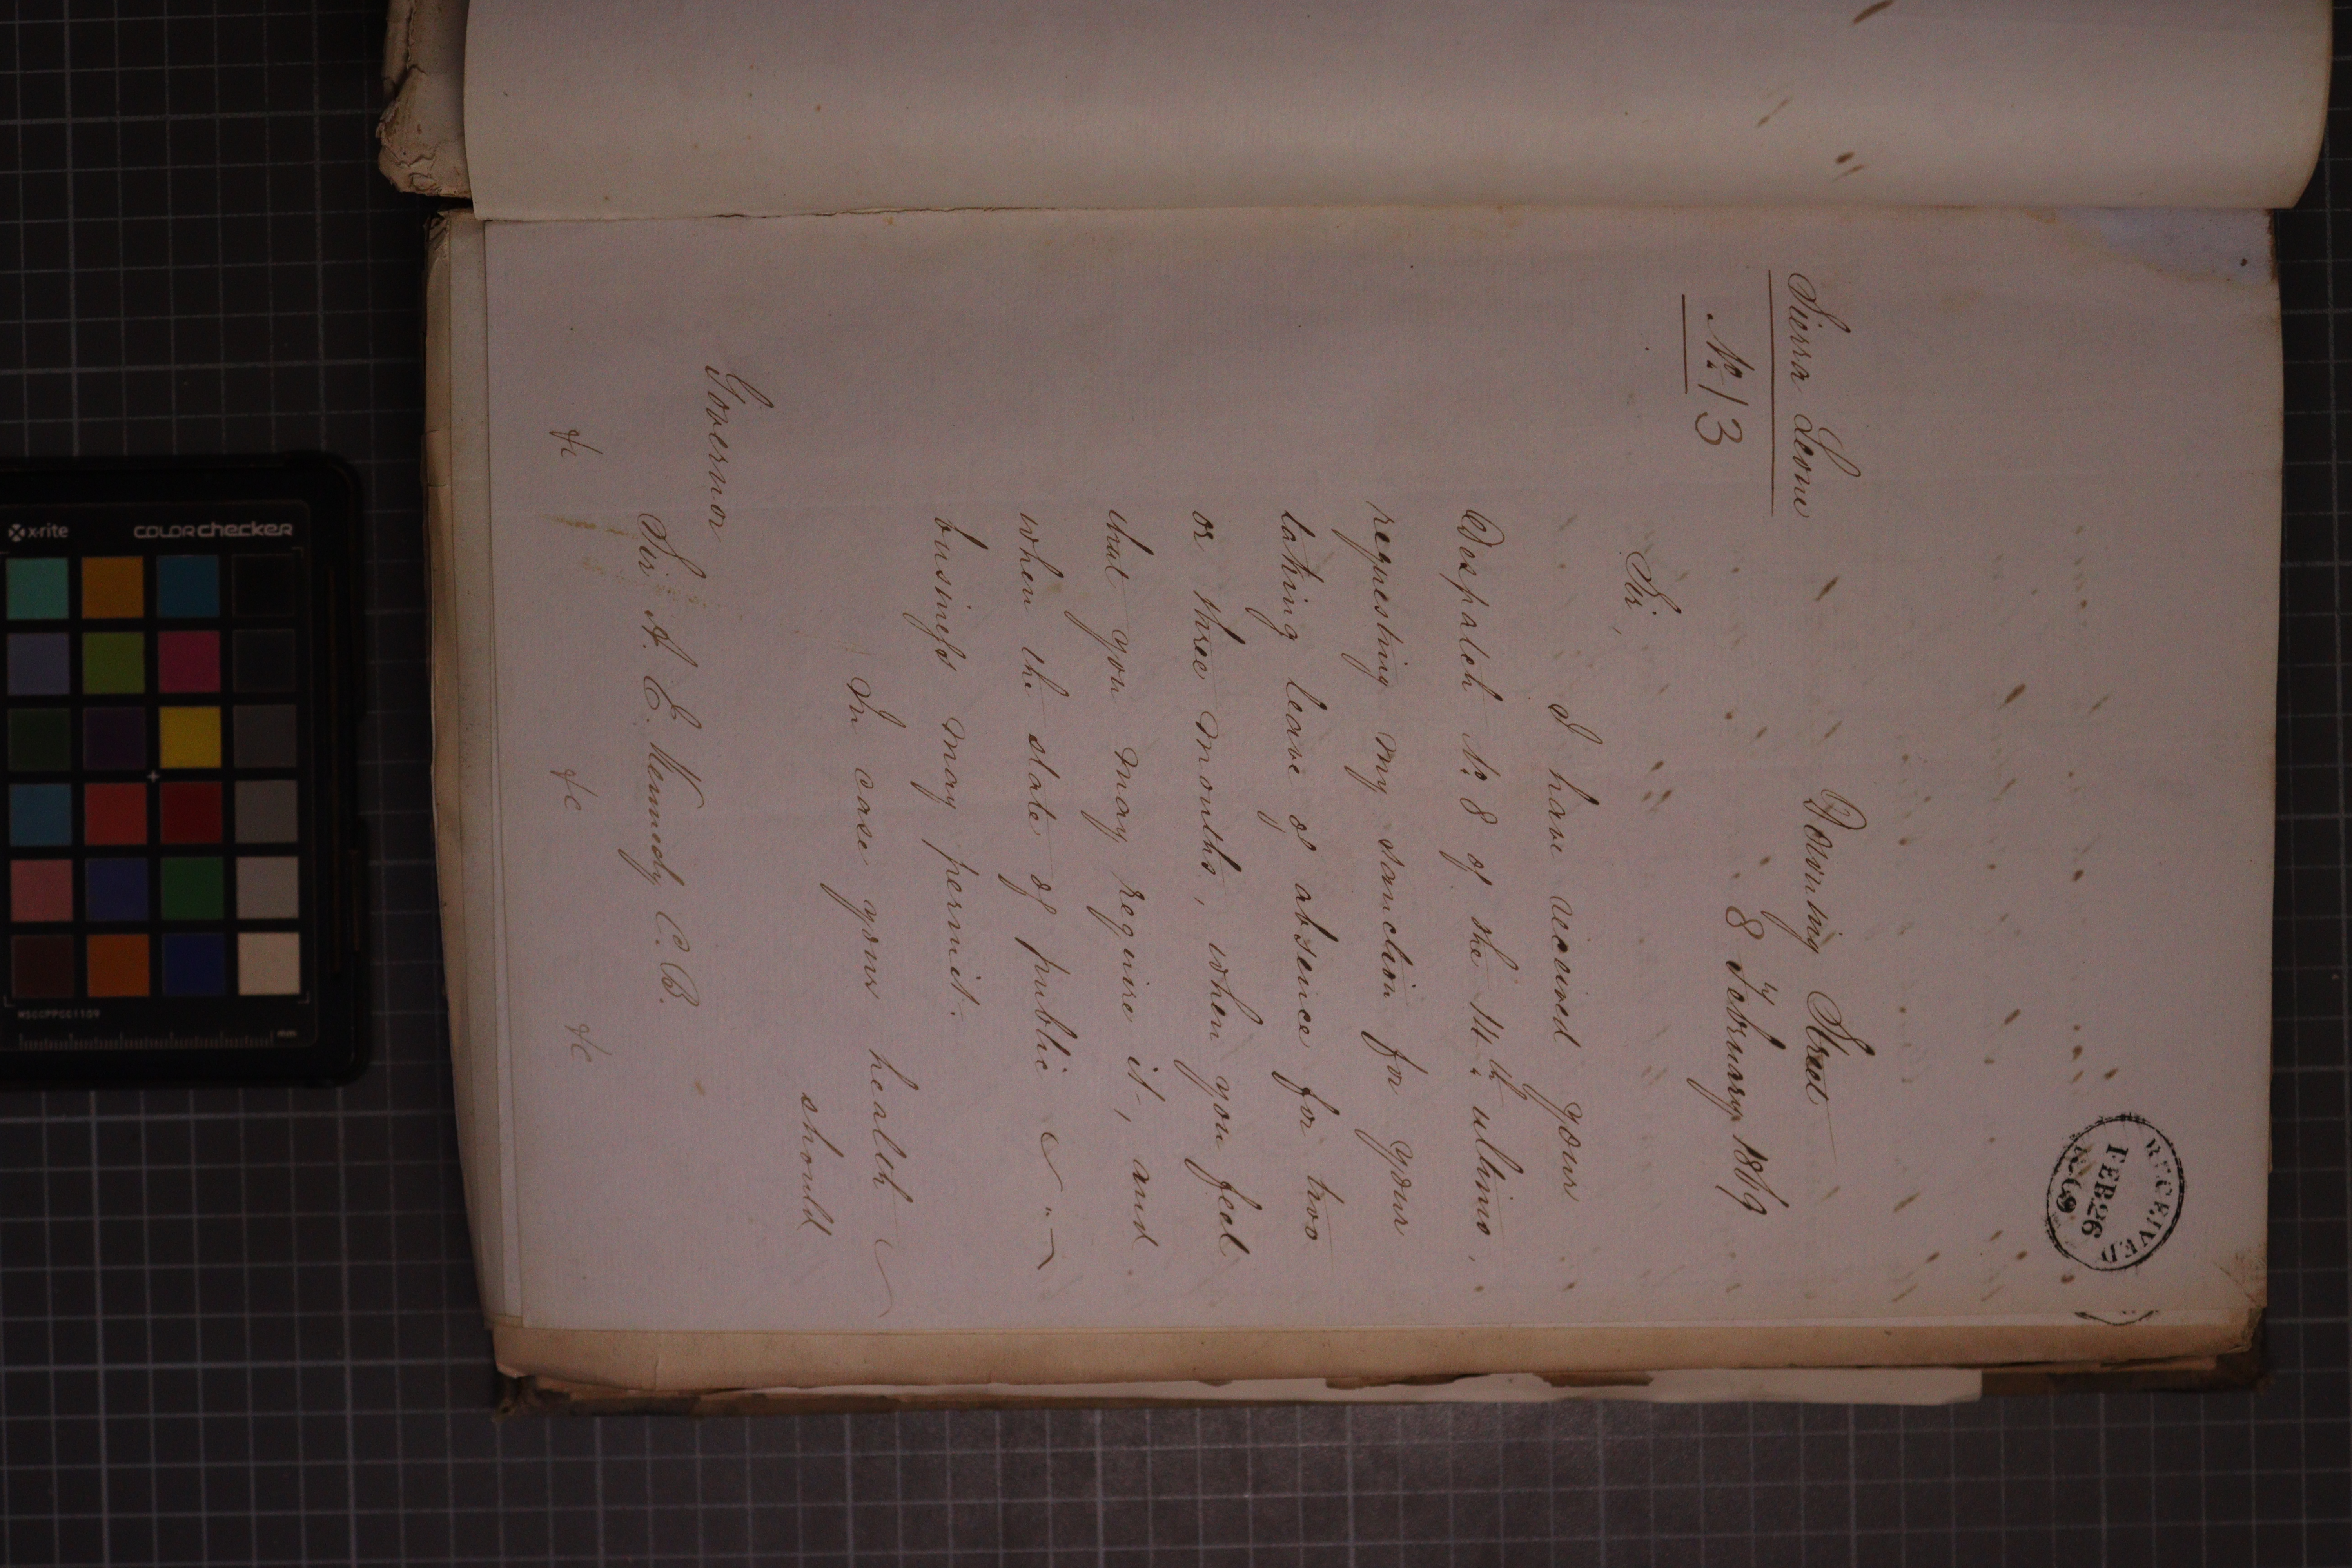 RECEIVED
FEB 26
1869
Sierra Leone
Downing Street
Nº 13
8 February 1869
Sir,
I have received your
Despatch Nº 8 of the 14th ultimo,
requesting my sanction for your
taking leave of absence for two
or three months, when you feel
that you may require it, and
when the state of public
business may permit.
In case your health
should
Governor
Sir A. E. Kennedy C.B.
&c &c &c
x-rite
colorchecker
MSCCPPCC1109
mm